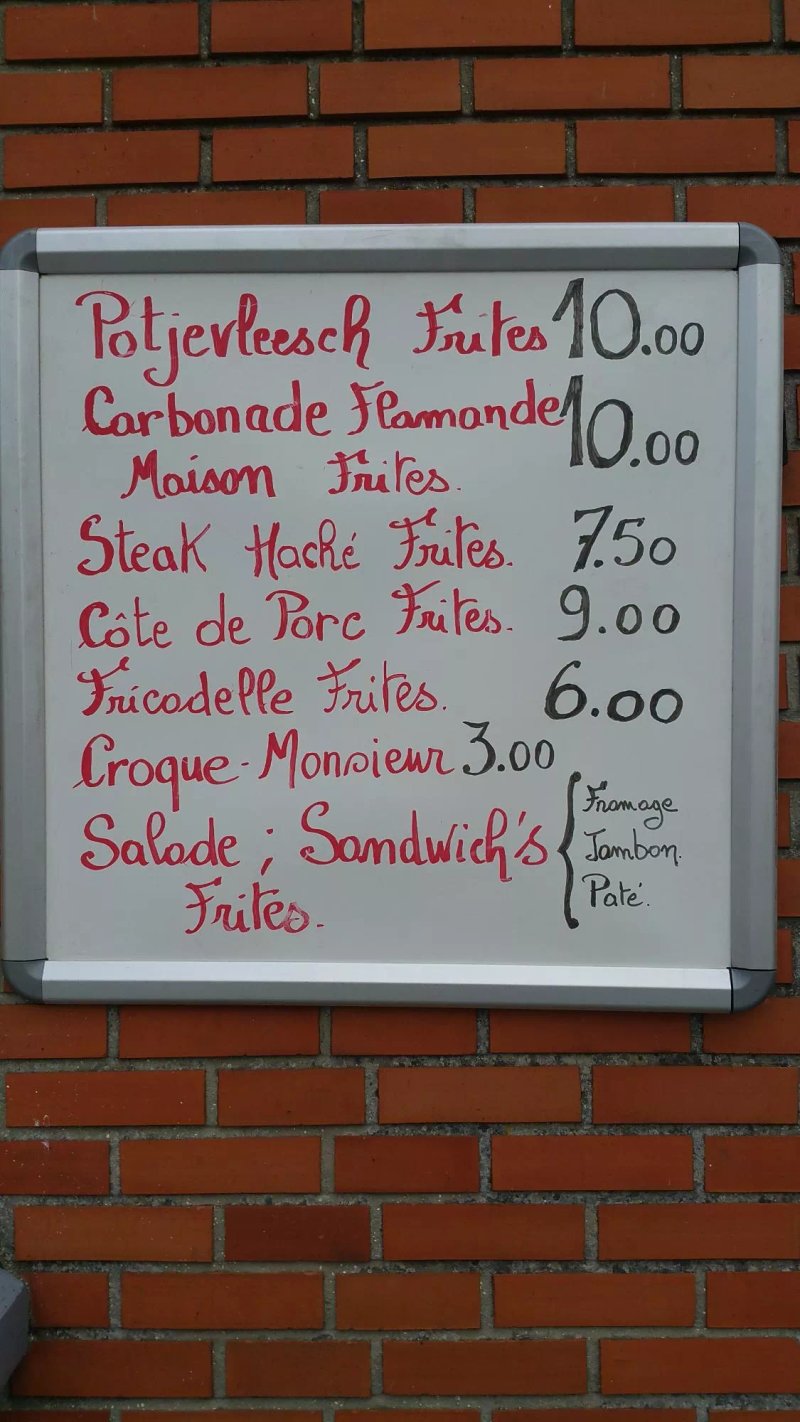 Potjevleesch Frites 10.00
Carbonade Flamande 10.00
Maison Frites.
Steak Haché Frites. 7.50
Côte de Porc Frites. 9.00
Fricadelle Frites. 6.00
Croque-Monsieur 3.00
Salade ; Sandwich's { Fromage
Jambon.
Frites. Paté.